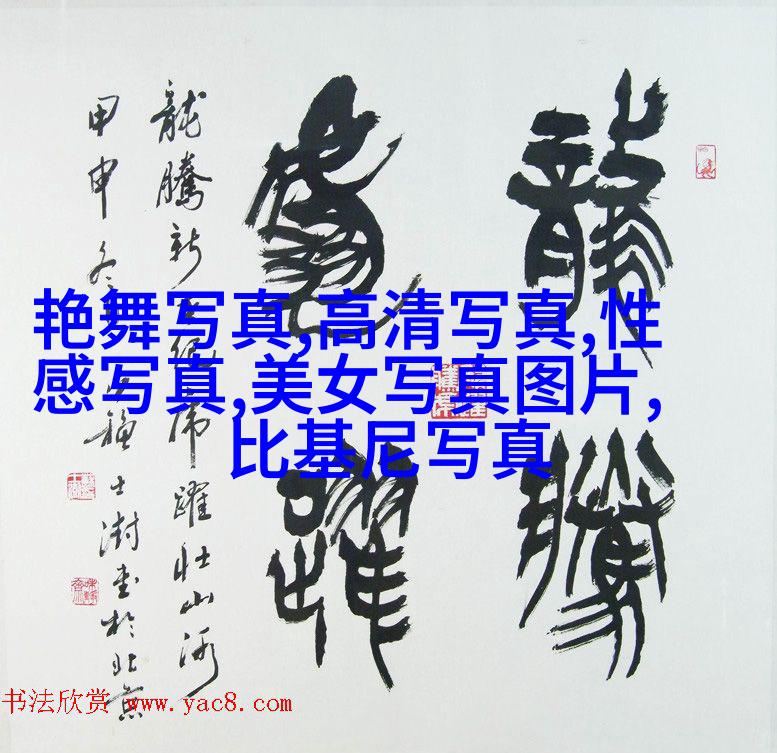 龍騰
虎躍
龍騰新世紀虎躍壯山河
甲申冬蘇士澍書於北京
艳舞写真,高清写真,性
感写真,美女写真图片,
比基尼写真
书法欣赏 www.yac8.com